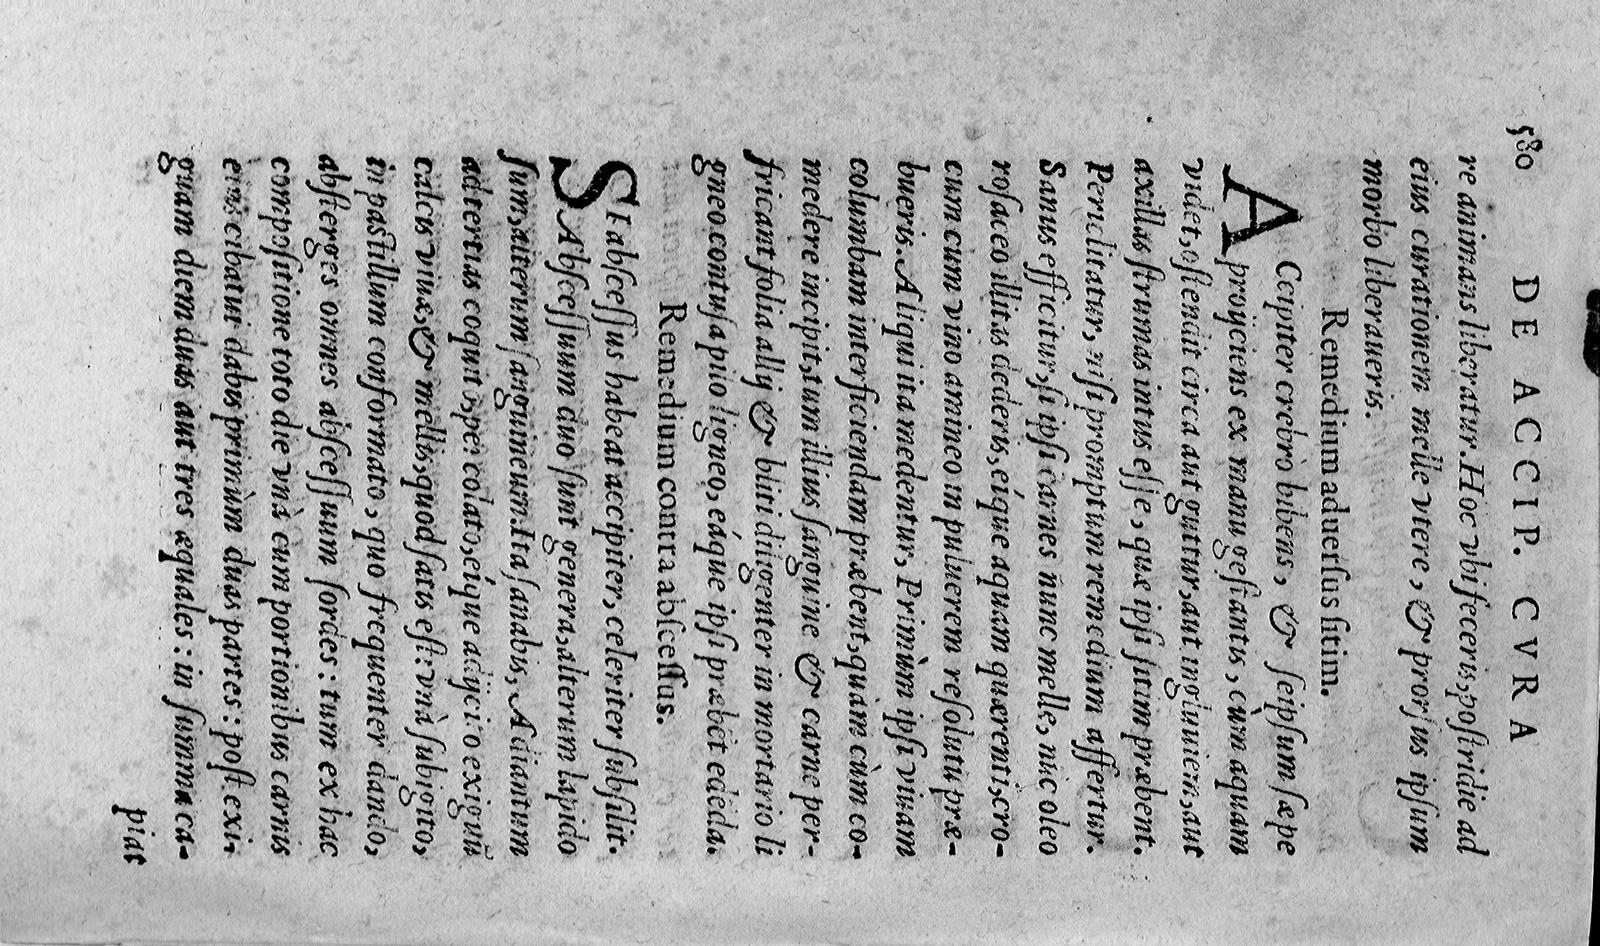 580 DE ACCIP. CVRA
re animans liberatur. Hoc vbi feceris, postridie ad
eius curationem melle vtere, & prorsus ipsum
morbo liberaueris.
Remedium aduersus sitim.
ACcipiter crebrò bibens, & seipsum sæpe
proijciens ex manu gestantis, cùm aquam
videt, ostendit circa aut guttur, aut ingluuiem, aut
axillas strumas intus esse, quæ ipsi sitim præbent.
Periclitatur, nisi promptum remedium affertur.
Sanus efficitur, si ipsi carnes nunc melle, nũc oleo
rosaceo illitas dederis, eíque aquam quærenti, cro-
cum cum vino amineo in puluerem resoluti præ-
bueris. Aliqui ita medentur, Primùm ipsi viuam
columbam interficiendam præbent, quàm cùm co-
medere incipit, tum illius sanguine & carne per-
fricant folia allij & bliti diligenter in mortario li
gneo contusa pilo ligneo, eáque ipsi præbẽt edẽda.
Remedium contra abscessus.
SI abscessus habeat accipiter, celeriter subsilit.
Abscessuum duo sunt genera, alterum lapido
sum, alterum sanguineum. Ita sanabis, Adiantum
ad tertias coquito, percolato, eíque adijcito exiguũ
calcis viuæ, & mellis, quod satis est: vnà subigito,
in pastillum conformato, quo frequenter dando,
absterges omnes abscessuum sordes: tum ex hac
compositione toto die vnà cum portionibus carnis
eius cibatui dabis primùm duas partes: post exi-
guam diem duas aut tres æquales: in summa ca-
piat